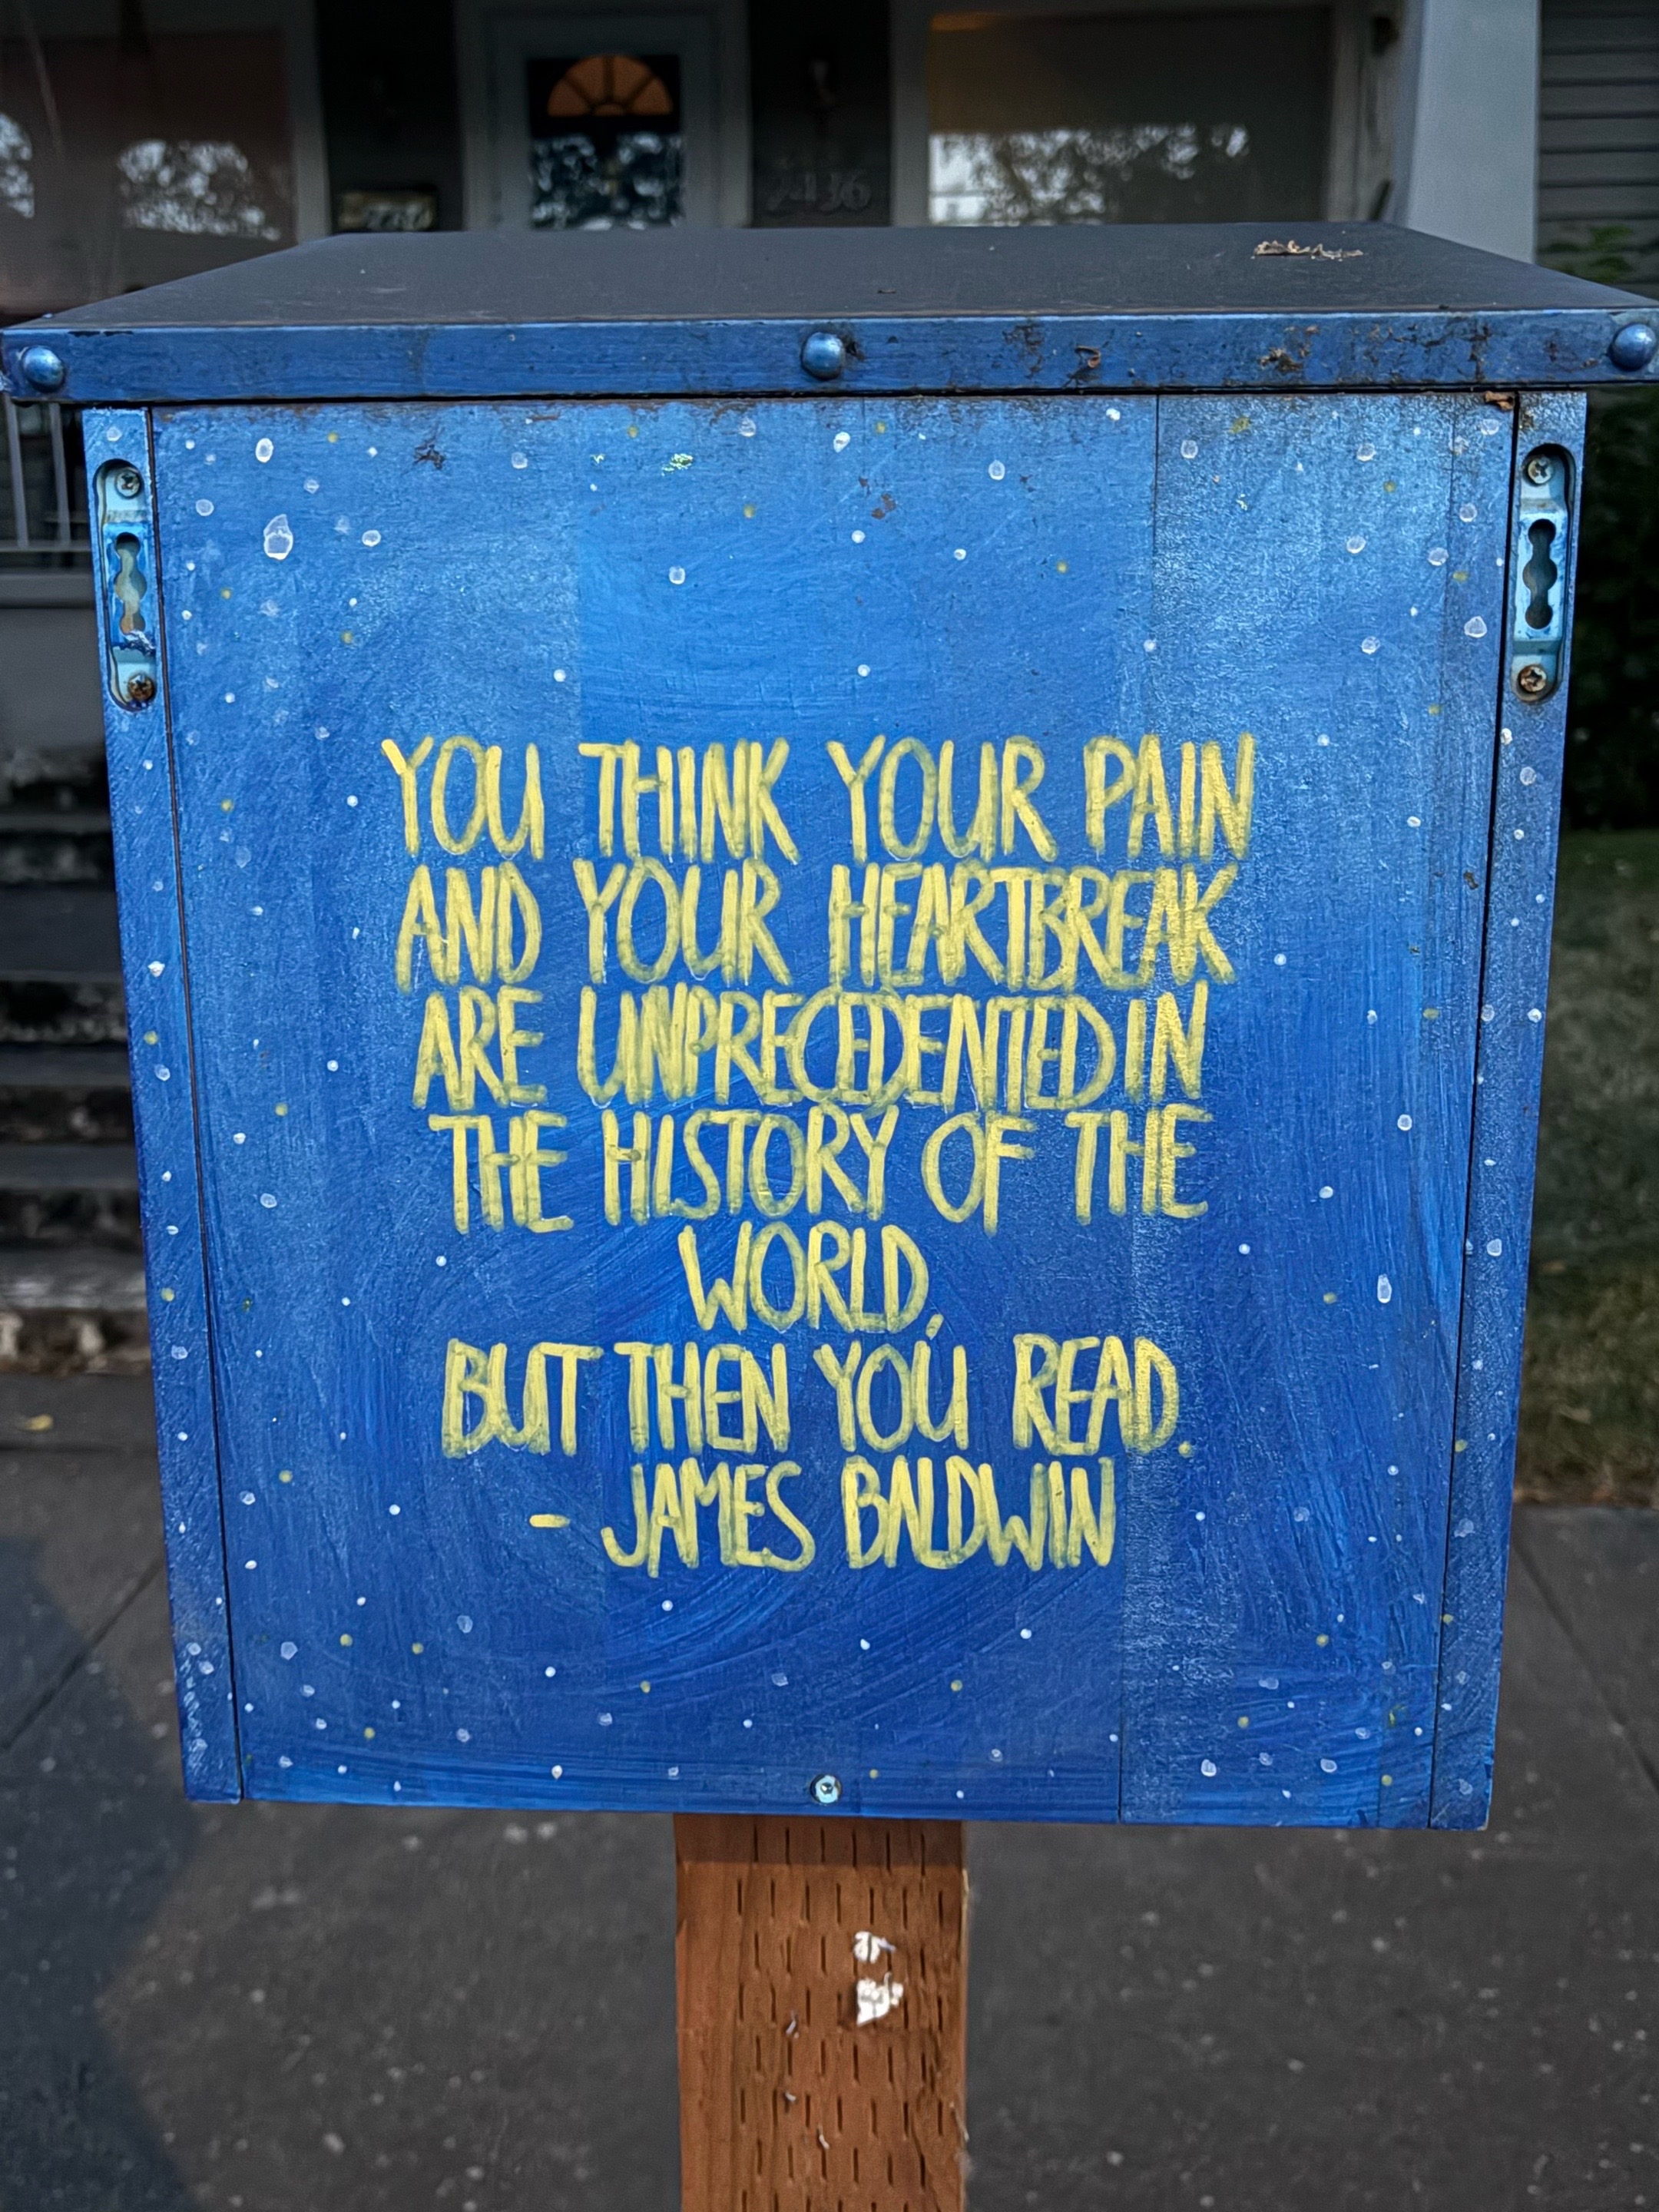 2436
YOU THINK YOUR PAIN
AND YOUR HEARTBREAK
ARE UNPRECEDENTED IN
THE HISTORY OF THE
WORLD,
BUT THEN YOU READ.
- JAMES BALDWIN